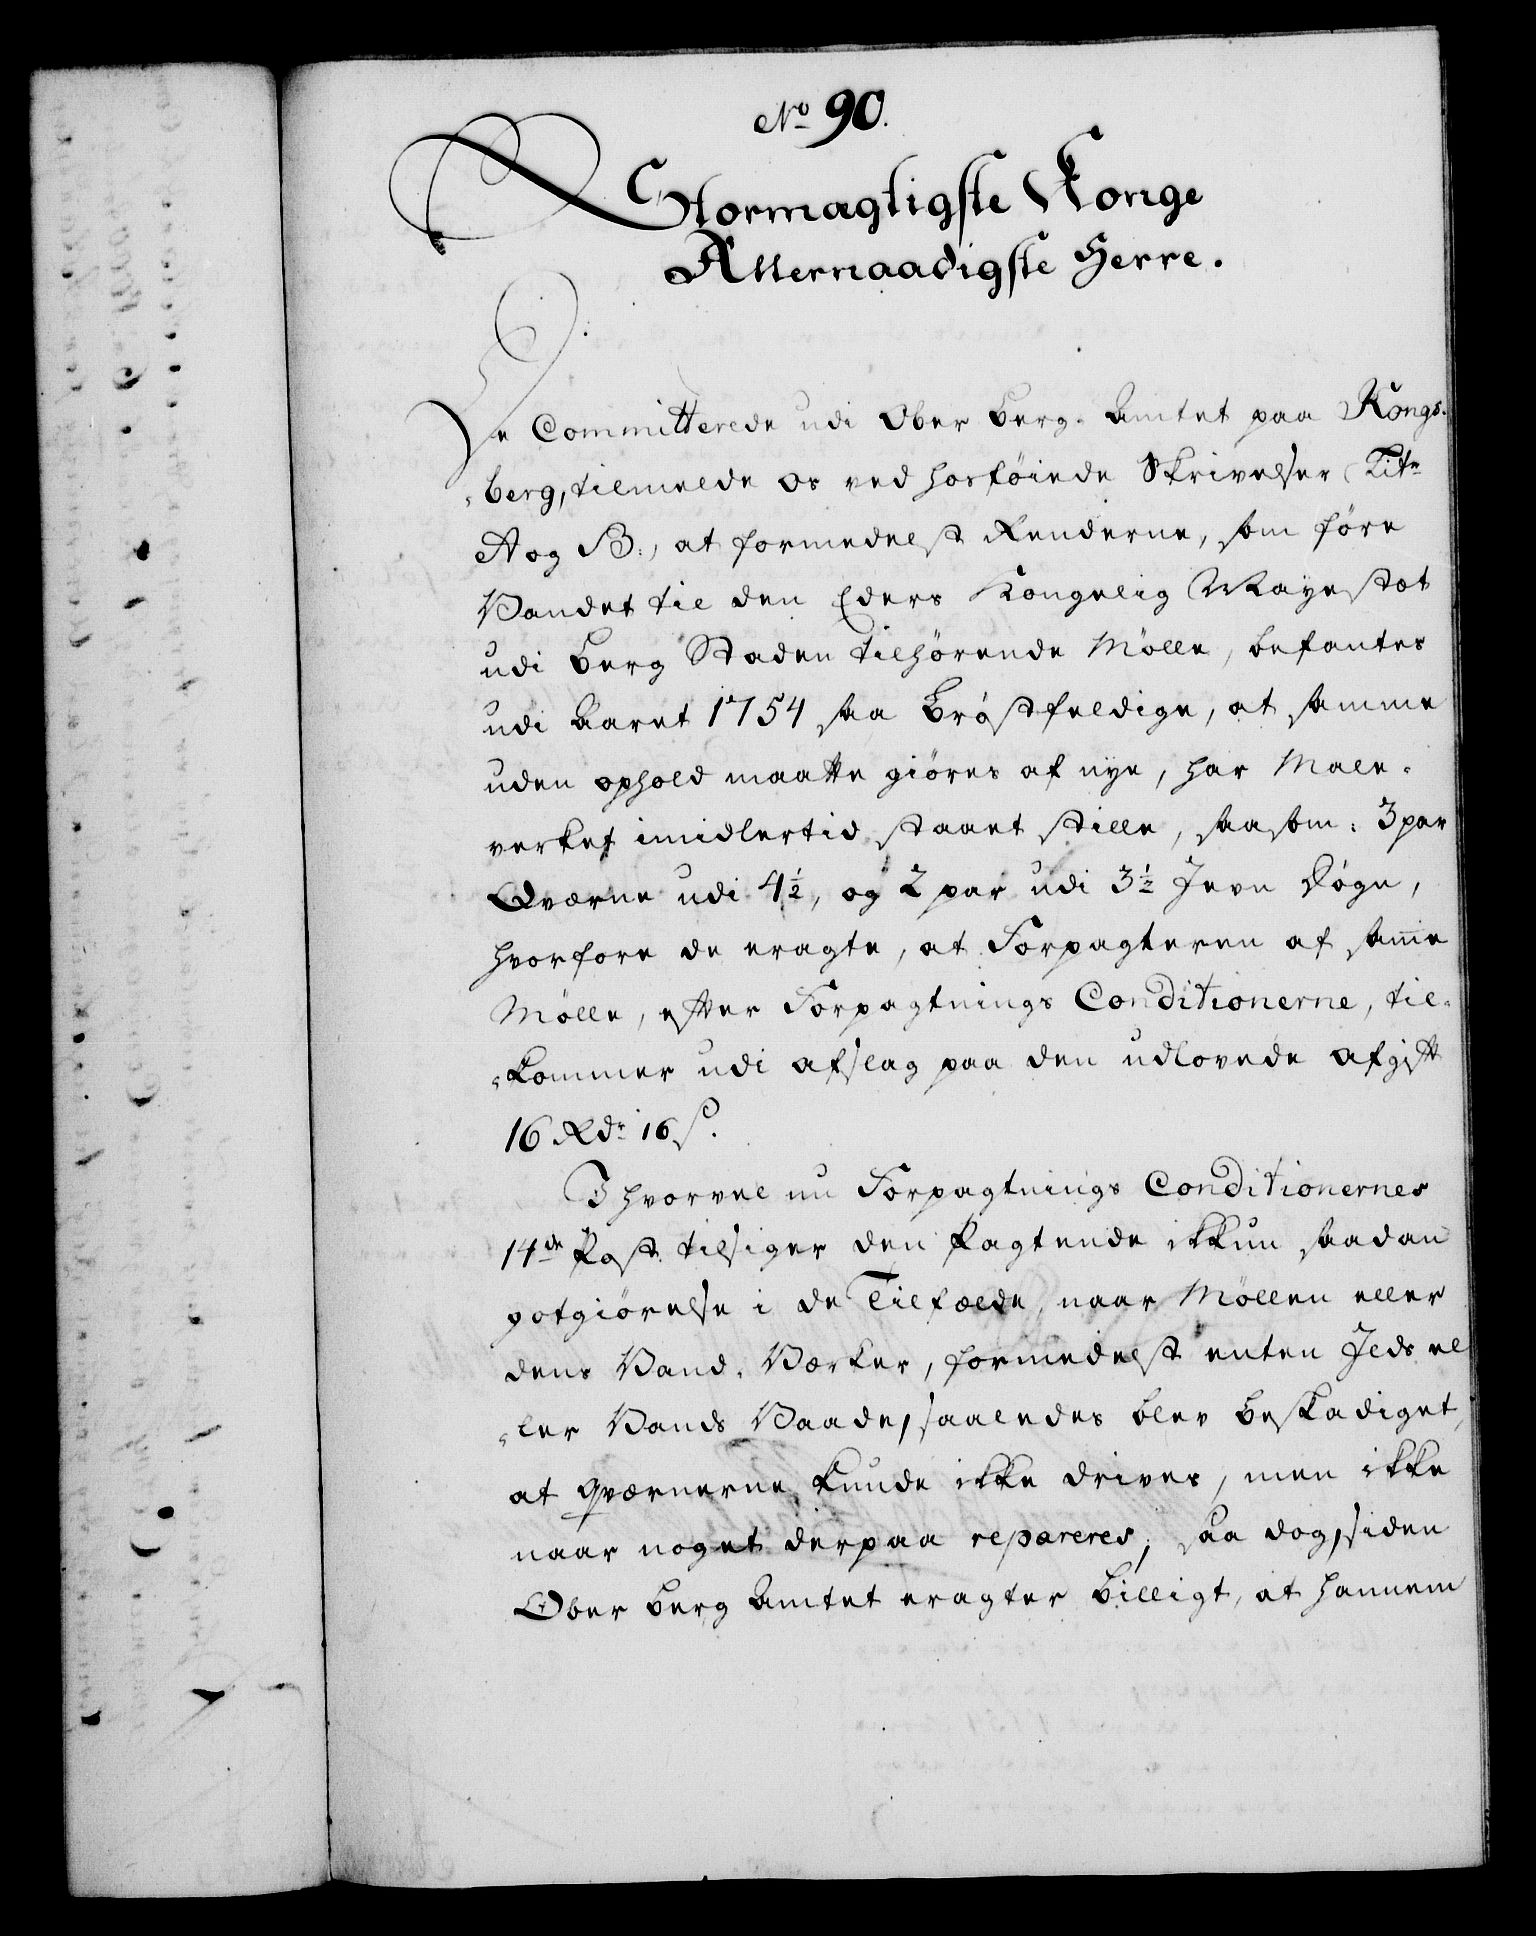 No 90.
Stormagtigste Konge
Allernaadigste Herre.
De Committerede udi Ober Berg-Amtet paa Kongs-
-berg, tilmelde os ved hosföiede Skrivelser Litr
A og B:, at formedelst Renderne, som före
Vandet til den Eders Kongelig Mayestæt
udi Berg Staden tilhörende Mölle, befantes
udi Aaret 1754 saa Bröstfeldige, at samme
uden ophold maatte giöres af nye, har Male-
verket imidlertid staaet stille, saasom: 3 par
Qværne udi 4½, og 2 par udi 3½ Jevn Døgn,
hvorfore de eragte, at Forpagteren af samme
Mölle, efter Forpagtnings Conditionerne, til-
-kommer udi afslag paa den udlovede afgift
16 Rdr 16 s.
I hvorvel nu Forpagtnings Conditionernes
14de Post tilsiger den Pagtende ikkun saadan
gotgiörelse i de Tilfælde, naar Möllen eller
dens Vand-Værker, formedelst enten Ilds el
-ler Vands Vaade, saaledes blev beskadiget,
at Qværnerne kunde ikke drives, men ikke
naar noget derpaa repareres; saa dog, siden
Ober Berg Amtet eragter billigt, at hannem